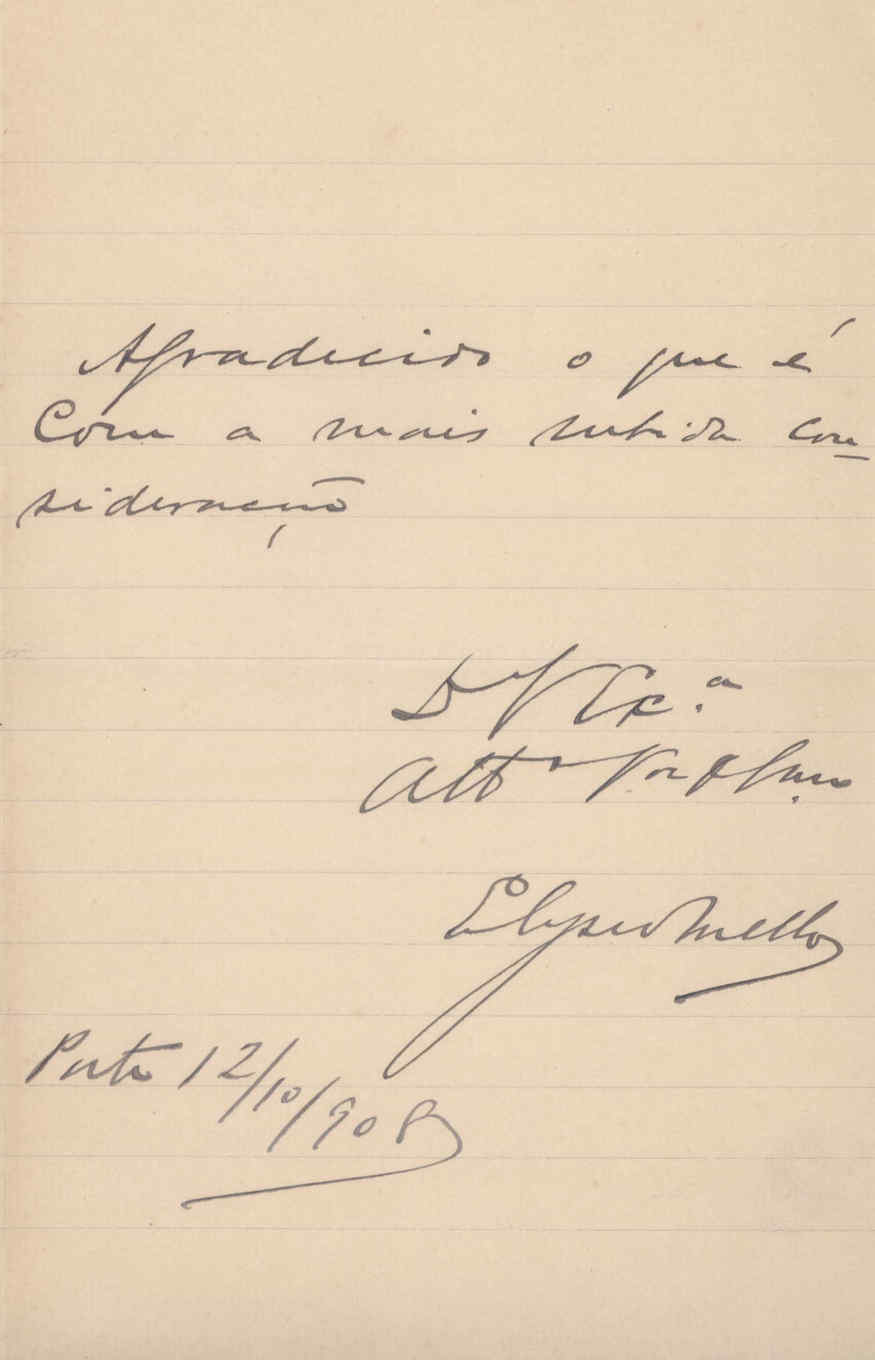 Agradecido o que é
Com a mais subida con
sideração
D V Exc.ª
Attº Vor
Elyseu Mello
Porto 12/10/908